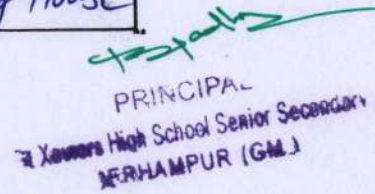 House
PRINCIPAL
Xaviers High School Senior Secondary
BERHAMPUR (GM.)